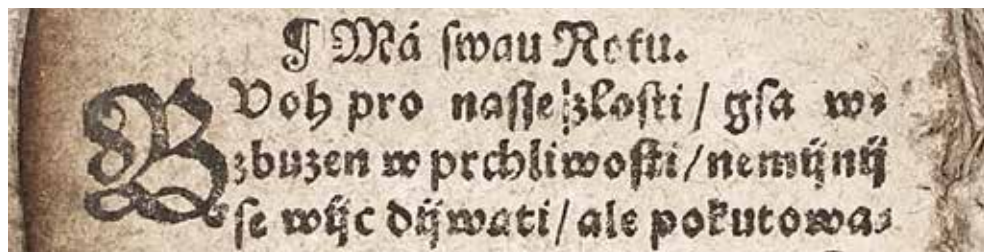 ¶ Má ſwau Notu.
BVoh pro naſſe zloſti / gſa w⸗
zbuzen w prchliwoſti / nemijnij
ſe wijc dijwati / ale pokutowa⸗